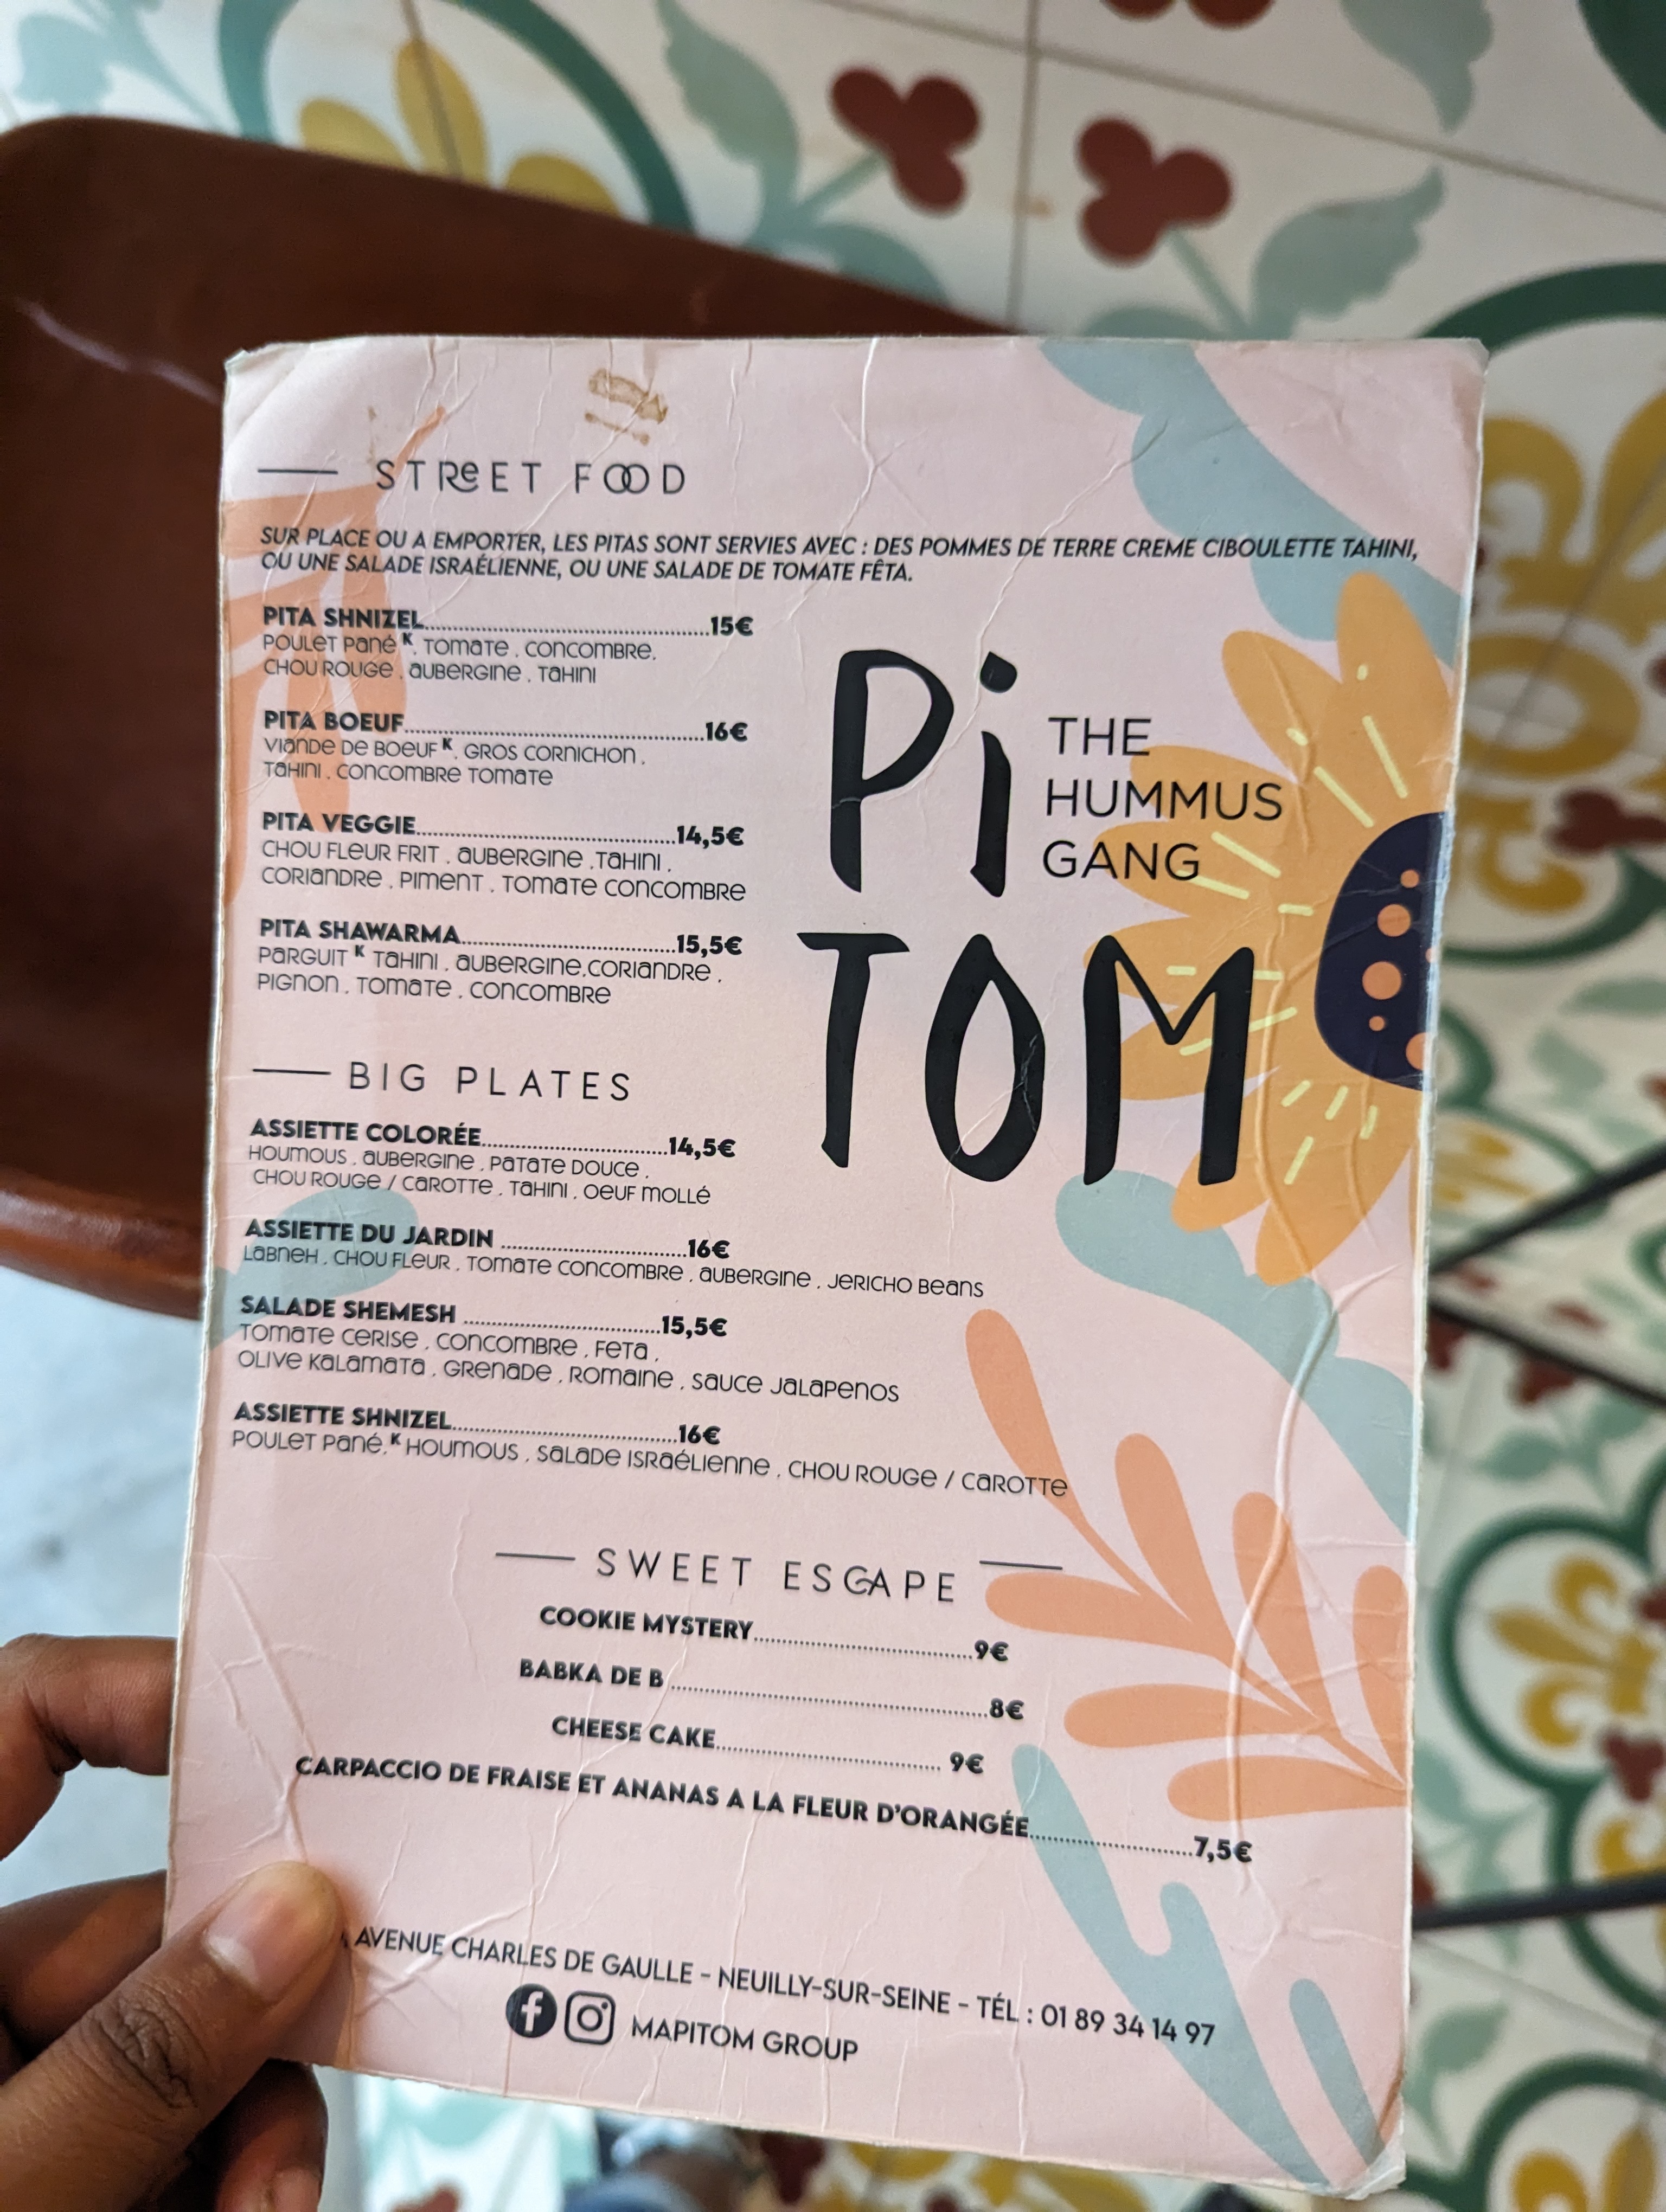 STREET FOOD
SUR PLACE OU A EMPORTER, LES PITAS SONT SERVIES AVEC : DES POMMES DE TERRE CREME CIBOULETTE TAHINI,
OU UNE SALADE ISRAÉLIENNE, OU UNE SALADE DE TOMATE FÊTA.
PITA SHNIZEL...15€
POULET PANÉ K. TOMATE . CONCOMBRE.
CHOU ROUGE . AUBERGINE . TAHINI
PITA BOEUF...16€
VIANDE DE BOEUF K. GROS CORNICHON .
TAHINI . CONCOMBRE TOMATE
PITA VEGGIE...14,5€
CHOU FLEUR FRIT . AUBERGINE .TAHINI .
CORIANDRE . PIMENT . TOMATE CONCOMBRE
PITA SHAWARMA...15,5€
PARGUIT K TAHINI . AUBERGINE.CORIANDRE .
PIGNON . TOMATE . CONCOMBRE
Pi TOM
THE
HUMMUS
GANG
BIG PLATES
ASSIETTE COLORÉE...14,5€
HOUMOUS . AUBERGINE . PATATE DOUCE .
CHOU ROUGE / CAROTTE . TAHINI . OEUF MOLLÉ
ASSIETTE DU JARDIN ...16€
LABNEH . CHOU FLEUR . TOMATE CONCOMBRE . AUBERGINE . JERICHO BEANS
SALADE SHEMESH ...15,5€
TOMATE CERISE . CONCOMBRE . FETA .
OLIVE KALAMATA . GRENADE . ROMAINE . SAUCE JALAPENOS
ASSIETTE SHNIZEL...16€
POULET PANÉ.K HOUMOUS . SALADE ISRAÉLIENNE . CHOU ROUGE / CAROTTE
SWEET ESCAPE
COOKIE MYSTERY...9€
BABKA DE B ...8€
CHEESE CAKE... 9€
CARPACCIO DE FRAISE ET ANANAS A LA FLEUR D'ORANGÉE...7,5€
AVENUE CHARLES DE GAULLE - NEUILLY-SUR-SEINE - TÉL : 01 89 34 14 97
MAPITOM GROUP